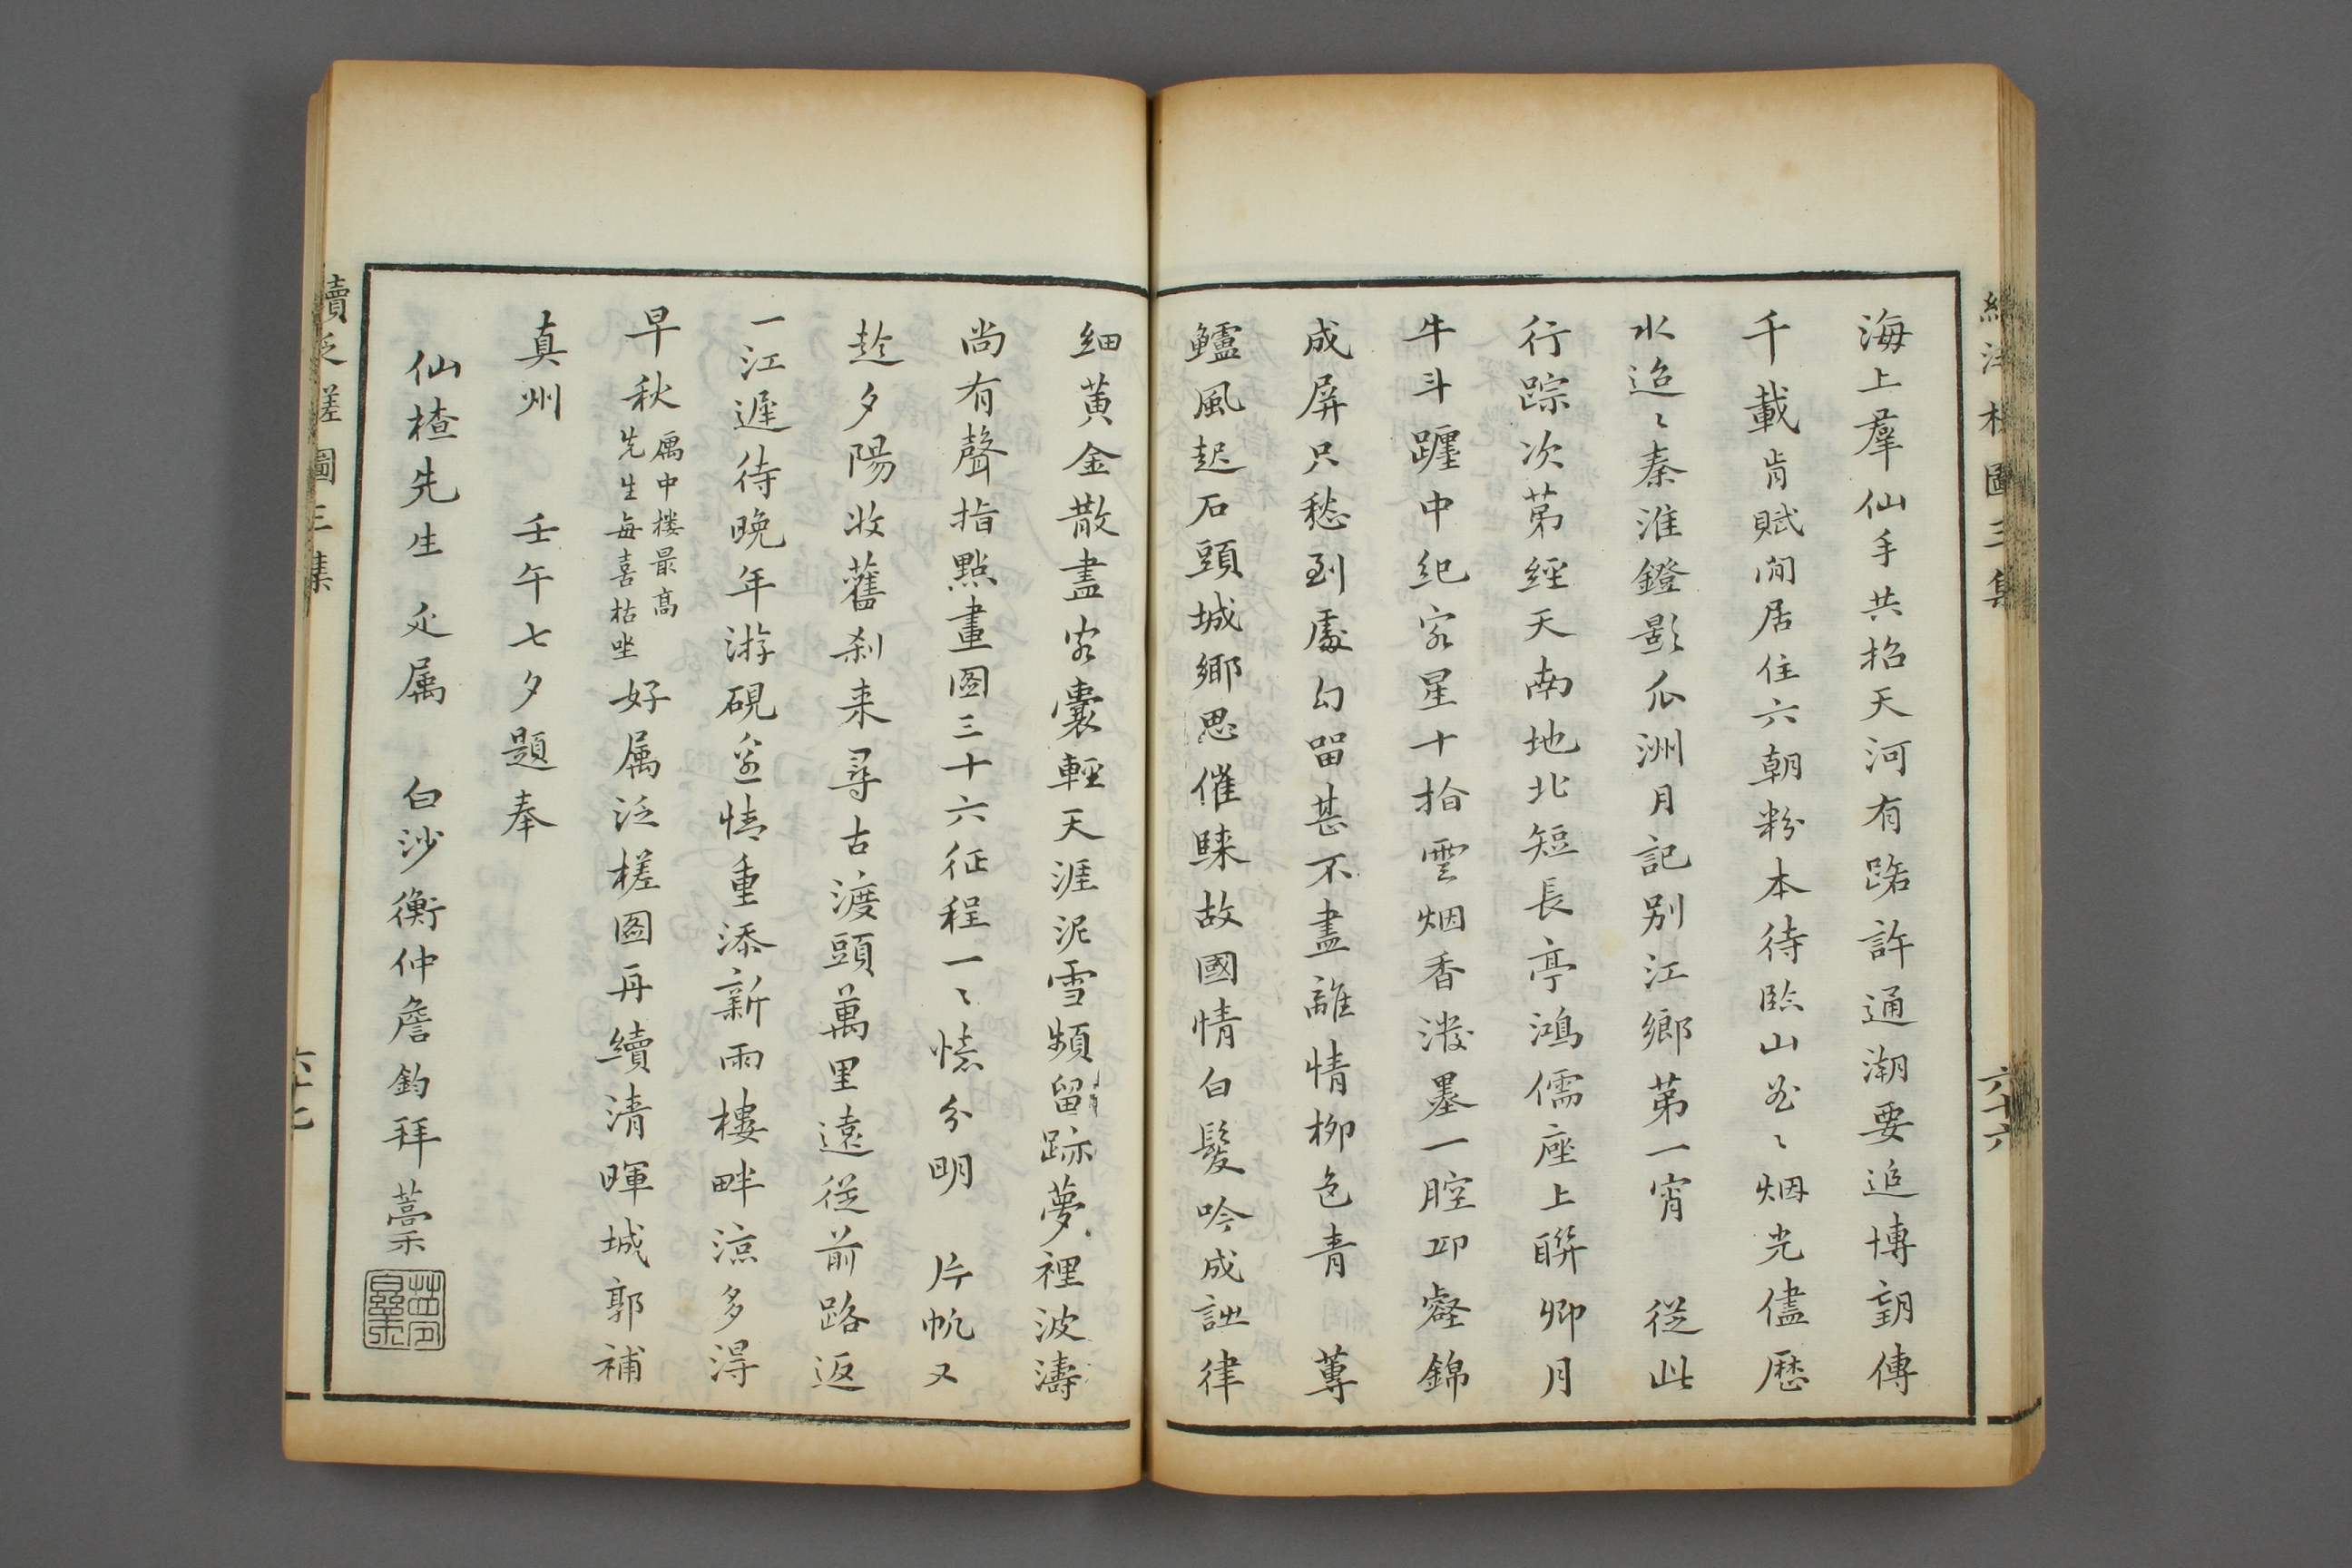 海上羣仙手共招天河有路許通潮要追博望傳
千載肯賦閒居住六朝粉本待臨山〻烟光儘歷
水迢〻秦淮鐙影瓜洲月記別江鄉第一宵　從此
行踪次第經天南地北短長亭鴻儒座上聯卿月
牛斗躔中紀客星十拾雲烟香潑墨一腔邱壑錦
成屏只愁到處勾留甚不盡離情柳色青　蓴
鱸風起石頭城鄉思催歸故國情白髮吟成詩律
細黃金散盡客囊輕天涯泥雪頻留跡夢裡波濤
尚有聲指點畫圖三十六征程一〻憶分明　片帆又
趁夕陽收舊刹来尋古渡頭萬里遠從前路返
一江遲待晚年游硯ⴰ情重添新雨樓畔涼多得
早秋
寓中樓最高
先生每喜枯坐
好属泛槎圖再續清暉城郭補
真州　壬午七夕題奉
仙槎先生　正属　白沙衡仲詹鈞拜藁
續泛槎圖三集
六十六
續泛槎圖三集
六十七